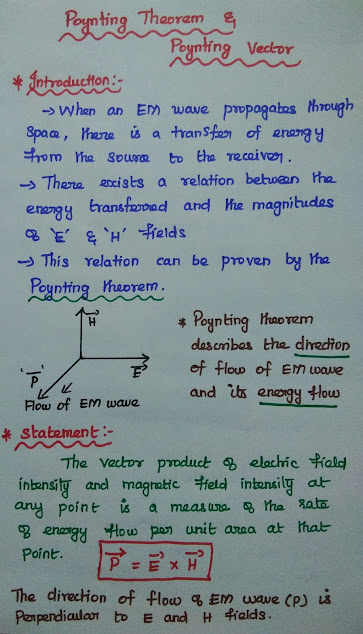 Poynting Theorem &
Poynting Vector
* Introduction:-
→ When an EM wave propagates through
space, there is a transfer of energy
from the source to the receiver.
→ There exists a relation between the
energy transferred and the magnitudes
of 'E' & 'H' fields
→ This relation can be proven by the
Poynting theorem.
H
'P'
E
Flow of EM wave
* Poynting theorem
describes the direction
of flow of EM wave
and its energy flow
* Statement:-
The vector product of electric field
intensity and magnetic field intensity at
any point is a measure of the rate
of energy flow per unit area at that
point.
P = E × H
The direction of flow of EM wave (P) is
Perpendicular to E and H fields.